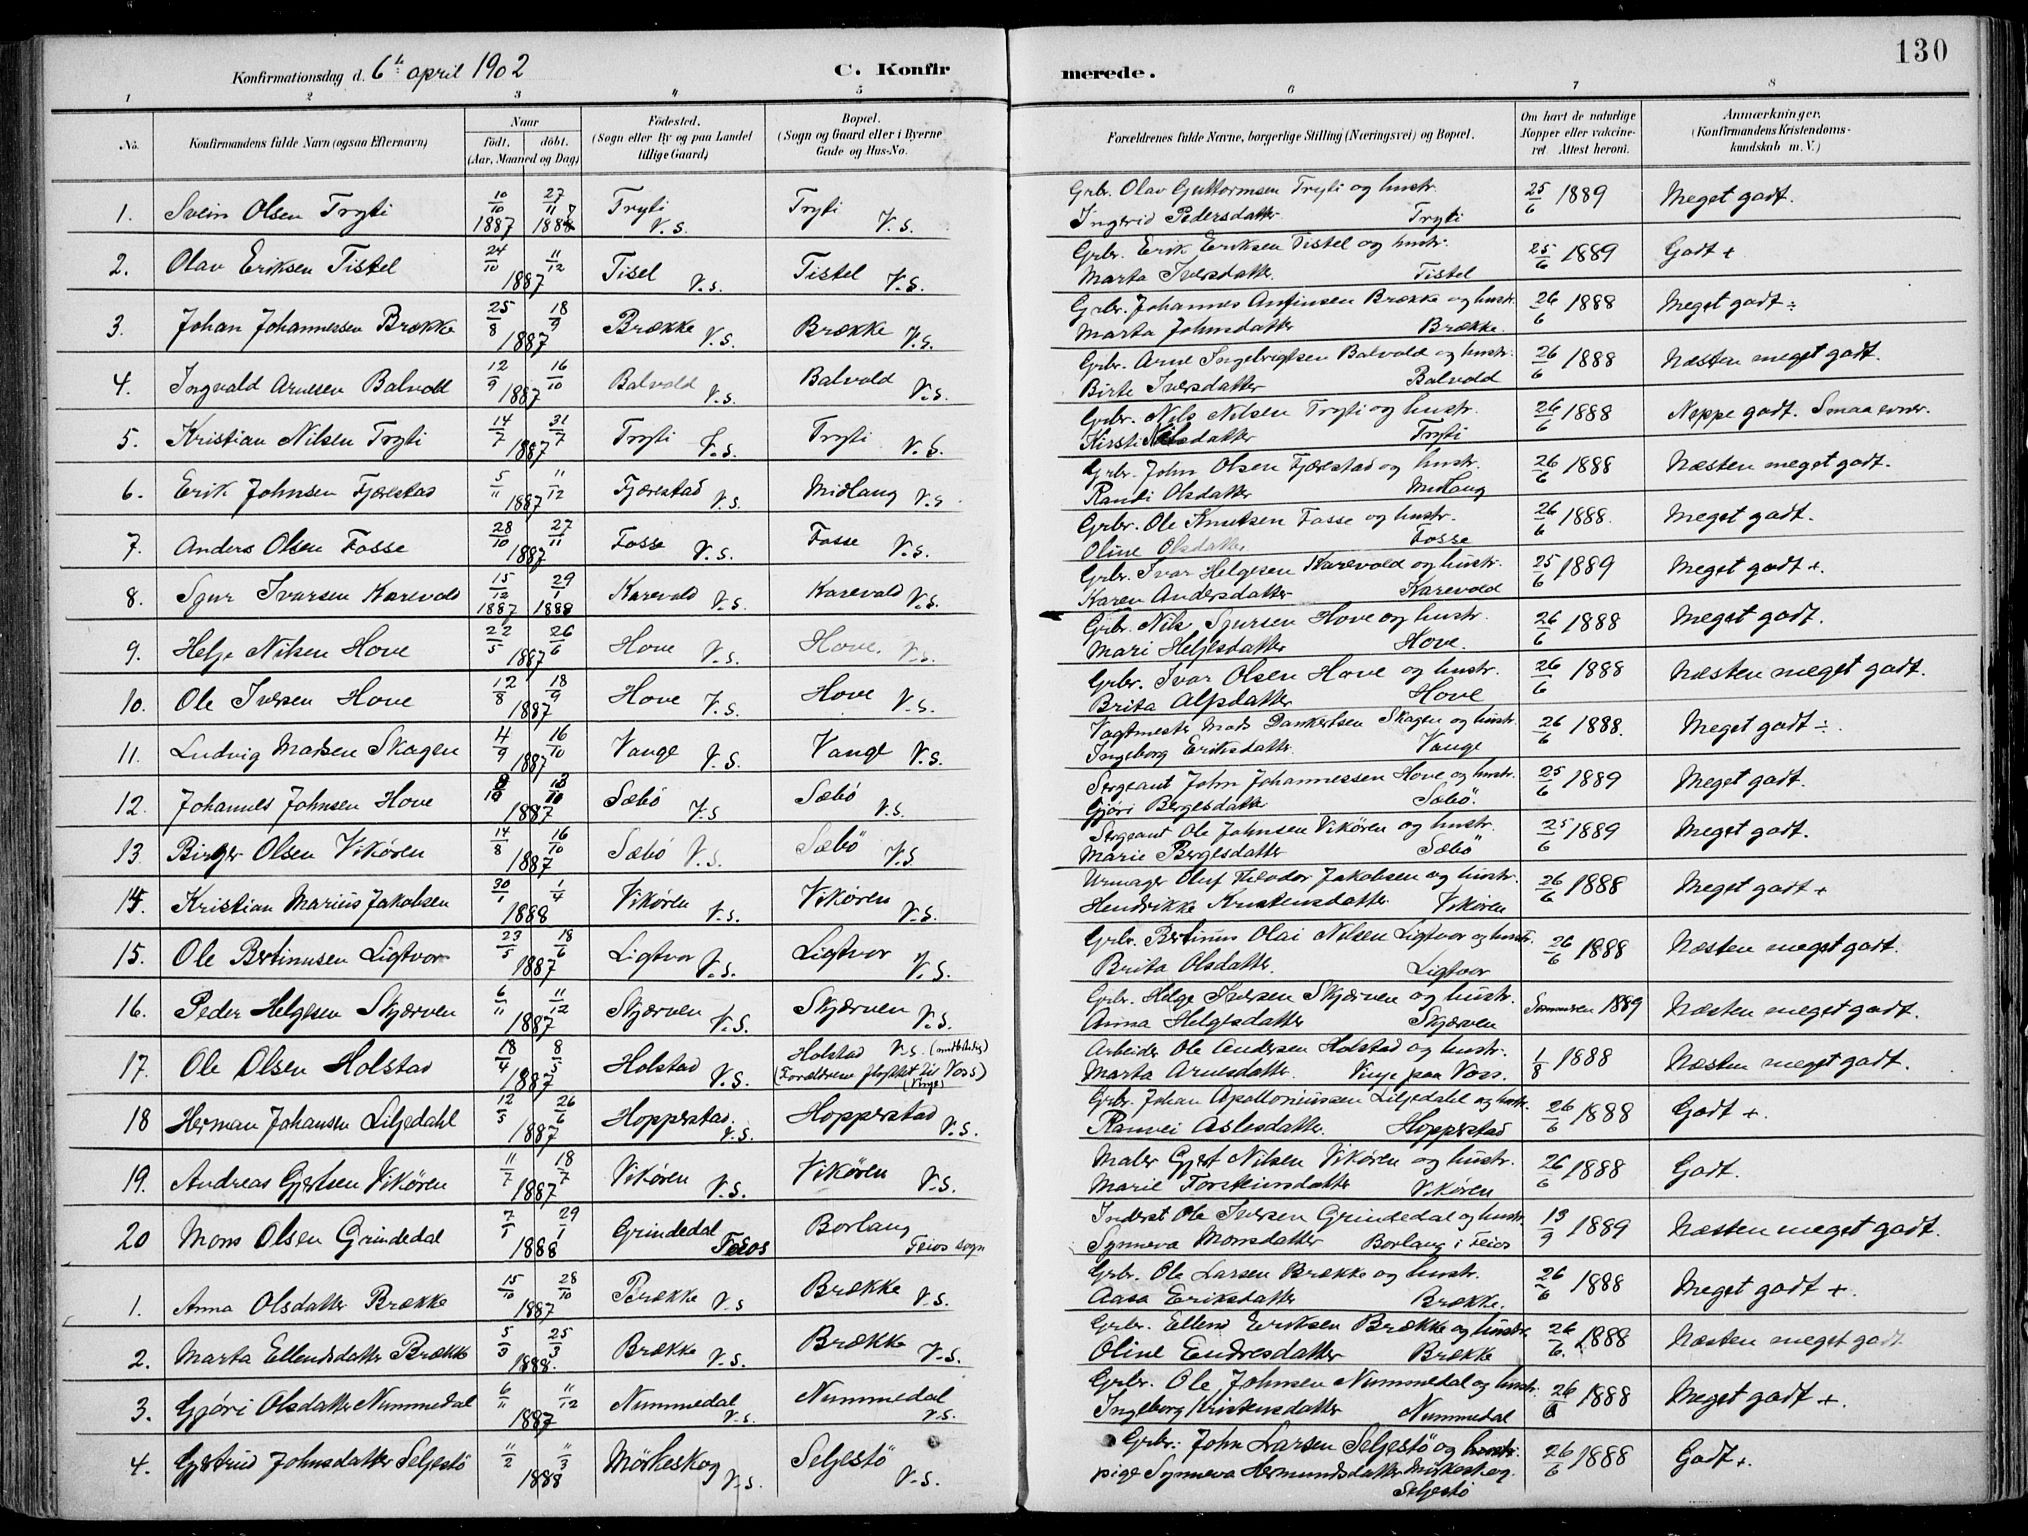 130
Konfirmationsdag d. 6te april 1902 C. Konfirmerede.
1 2 3 " 5 6 7 8
No. Konfirmandens fulde Navn (ogsaa Efternavn) Naar født. døbt. (Aar, Maaned og Dag) Fødested. (Sogn eller By og paa Landet tillige Gaard) Bopæl. (Sogn og Gaard eller i Byerne Gade og Hus-No. Forældrenes fulde Navne, borgerlige Stilling (Næringsvei) og Bopæl. Om havt de naturlige Kopper eller vaccineret. Attest herom. Anmærkninger. (Konfirmandens Kristendomskundskab m. V.)
1. Svein Olsen Tryti 10/10 1887 27/11 1887 Tryti V.S. Tryti V.S. Grbr. Olav Guttormsen Tryti og hustr. Ingerid Pedersdatter Tryti 25/6 1889 Meget godt.
2. Olav Eriksen Tistel 24/10 11/12 1887 Tisel V.S. Tistel V.S. Grbr. Erik Eriksen Tistel og hustr. Marta Iversdatter Tistel 25/6 1889 Godt +
3. Johan Johannessen Brække 25/8 18/9 1887 Brække V.S. Brække V.S. Grbr. Johannes Anfinsen Brække og hustr. Marta Johnsdatter Brække. 26/6 1888 Meget godt ÷
4. Ingvald Arnesen Balvold 12/9 16/10 1887 Balvold V.S. Balvold V.S. Grbr. Arne Ingebrigtsen Balvold og hustr. Birte Iversdatter Balvold 26/6 1888 Næsten meget godt.
5. Kristian Nilsen Tryti 14/7 31/7 1887 Tryti V.S. Tryti V.S. Grbr. Nils Nilsen Tryti og hustr. Kirsti Nilsdatter Tryti 26/6 1888 Neppe godt. Smaa evner.
6. Erik Johnsen Fjærestad 5/11 11/12 1887 Fjærestad V.S. Midlang V.S. Grbr. John Olsen Fjærestad og hustr. Randi Olsdatter Midlang 26/6 1888 Næsten meget godt.
7. Anders Olsen Fosse 28/10 27/11 1887 Fosse V.S. Fosse V.S. Grbr. Ole Knutsen Fosse og hustr. Oline Olsdatter Fosse 26/6 1888. Meget godt.
8. Sjur Ivarsen Karevold 15/12 1887 29/1 1888 Karevold V.S. Karevold V.S. Grbr. Ivar Helgesen Karevold og hustr. Karen Andersdatter Karevold 25/6 1889 Meget godt +.
9. Helje Nilsen Hove 22/5 26/6 1887 Hove V.S. Hove. V.S. Grbr. Nils Sjursen Hove og hustr. Mari Heljesdatter Hove. 26/6 1888 Meget godt.
10. Ole Iversen Hove 12/8 18/9 1887 Hove V.S. Hove V.S. Grbr. Ivar Olsen Hove og hustr. Brita Alfsdatter Hove 26/6 1888 Næsten meget godt.
11. Ludvig Madsen Skagen 4/9 16/10 1887 Vange V.S. Vange V.S. Vagtmester Mads Dankertsen Skagen og hustr. Ingeborg Eriksdatter Vange 26/6 1888. Meget godt ÷.
12. Johannes Johnsen Hove 1887 Sæbø V.S Sæbø V.S. Sergeant John Johannessen Hove og hustr. Gjøri Bergesdatter Sæbø. 25/6 1889 Meget godt.
13. Birger Olsen Vikøren 14/8 16/10 1887 Sæbø V.S. Sæbø V.S Sergeant Ole Johnsen Vikøren og hustr. Marie Bergesdatter Sæbø 25/6 1889 Meget godt.
14. Kristian Marius Jakobsen 30/1 1/4 1888 Vikøren V.S. Vikøren V.S. Urmager Oluf Theodor Jakobsen og hustr. Hendrikke Kristensdatter Vikøren 26/6 1888 Meget godt +
15. Ole Bertinusen Ligtvor 23/5 18/6 1887 Ligtvor V.S. Ligtvor V.S. Grbr. Bertinus Olai Nilsen Ligtvor og hustr. Brita Olsdatter. Ligtvor 26/6 1888 Næsten meget godt.
16. Peder Helgesen Skjærven 6/11 11/12 1887 Skjærven V.S. Skjærven V.S. Grbr. Helge Iversen Skjærven og hustr. Anna Helgesdatter Skjærven Sommeren 1889 Næsten meget godt.
17. Ole Olsen Holstad 18/4 8/5 1887 Holstad V.S. Holstad V.S. (midlertidig) (Forældrene flyttet til Voss) (Vinje) Arbeider Ole Andersen Holstad og hustr. Marta Arnesdatter. Vinje paa Voss. 1/8 1888 Næsten meget godt.
18 Herman Johansen Liljedahl 12/5 26/6 1887 Hopperstad. V.S. Hopperstad V.S. Grbr. Johan Apolloniussen Liljedahl og hustr. Ranvei Aslesdatter. Hopperstad 26/6 1888 Godt +.
19. Andreas Gjertsen Vikøren 11/7 18/7 1887 Vikøren V.S. Vikøren V.S. Maler Gjert Nilsen Vikøren og hustr. Marie Torsteinsdatter Vikøren 26/6 1888 Godt.
20 Mons Olsen Grindedal 7/1 29/1 1888 Grindedal Feios Borlaug Feios sogn Inderst Ole Iversen Grindedal og hustr. Synneva Monsdatter Borlaug i Feios 13/9 1889 Næsten meget godt.
1. Anna Olsdatter Brække 15/10 28/10 1887 Brække V.S Brække V.S. Grbr. Ole Larsen Brække og hustr. Aasa Eriksdatter Brække. 26/6 1888 Meget godt +.
2. Marta Ellendsdatter Brække 5/3 25/3 1888. Brække V.S. Brække V.S. Grbr. Ellend Eriksen Brække og hustr. Oline Endresdatter Brække 26/6. 1888 Næsten meget godt
3. Gjøri Olsdatter Nummedal 6/11 11/12 1887 Nummedal V.S. Nummedal V.S. Grbr. Ole Johnsen Nummedal og hustr. Ingeborg Kristensdatter Nummedal 26/6 1888 Meget godt +
4. Gjertrud Johnsdatter Seljestø 11/2 11/3 1888 Mørkeskog V.S. Seljestø V.S. Grbr. John Larsen Seljestø og pige Synneva Hermundsdatter Mørkeskog Seljestø 26/6 1888 Godt +.